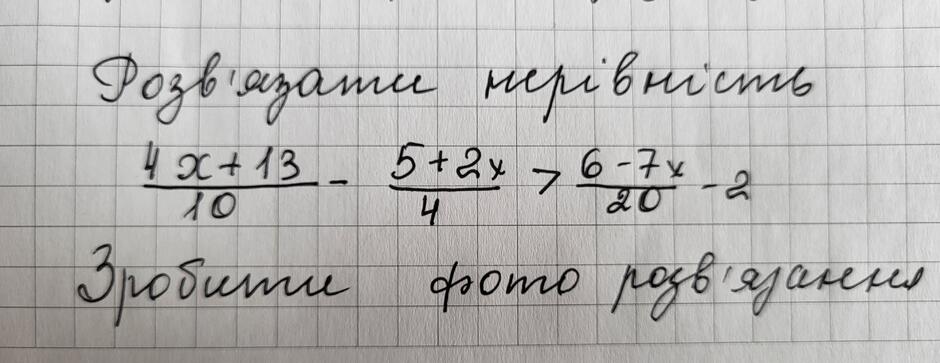 Розв'язати нерівність
4x+13/10 - 5+2x/4 > 6-7x/20 - 2
Зробити фото розв'язання